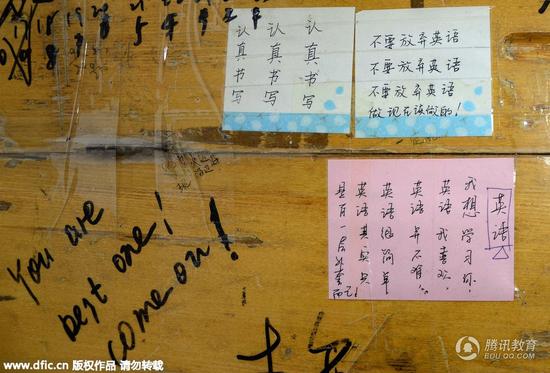 认真书写
认真书写
认真书写
不要放弃英语
不要放弃英语
不要放弃英语
做现在该做的!
英语
我想学习你,
英语我喜欢,
英语并不难,
英语很简单
英语其实只
是有一层外套而已!
You are
best one!
come on!
腾讯教育
EDU.QQ.COM
www.dfic.cn 版权作品 请勿转载